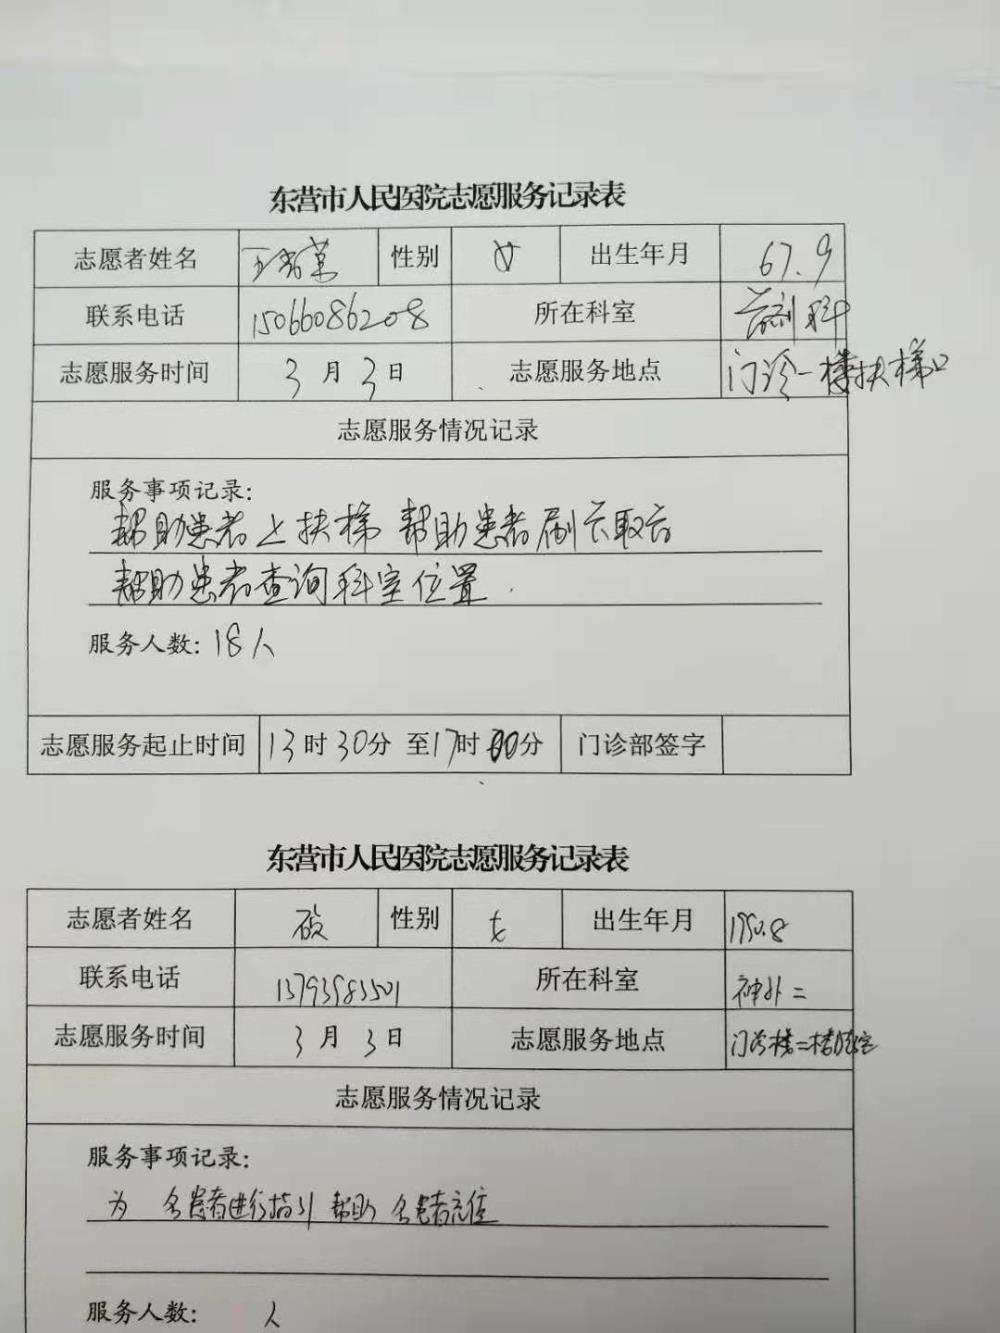 东营市人民医院志愿服务记录表
志愿者姓名 王 性别 女 出生年月 67.9
联系电话 15066086208 所在科室 药剂科
志愿服务时间 3月3日 志愿服务地点 门诊一楼扶梯口
志愿服务情况记录
服务事项记录:
帮助患者上扶梯 帮助患者刷 取
帮助患者查询科室位置.
服务人数: 18人
志愿服务起止时间 13时30分 至17时00分 门诊部签字
东营市人民医院志愿服务记录表
志愿者姓名 性别 女 出生年月
联系电话 所在科室 神外二
志愿服务时间 3月3日 志愿服务地点 门诊楼二楼
志愿服务情况记录
服务事项记录:
为 名患者进行指引 帮助 名患者
服务人数: 人